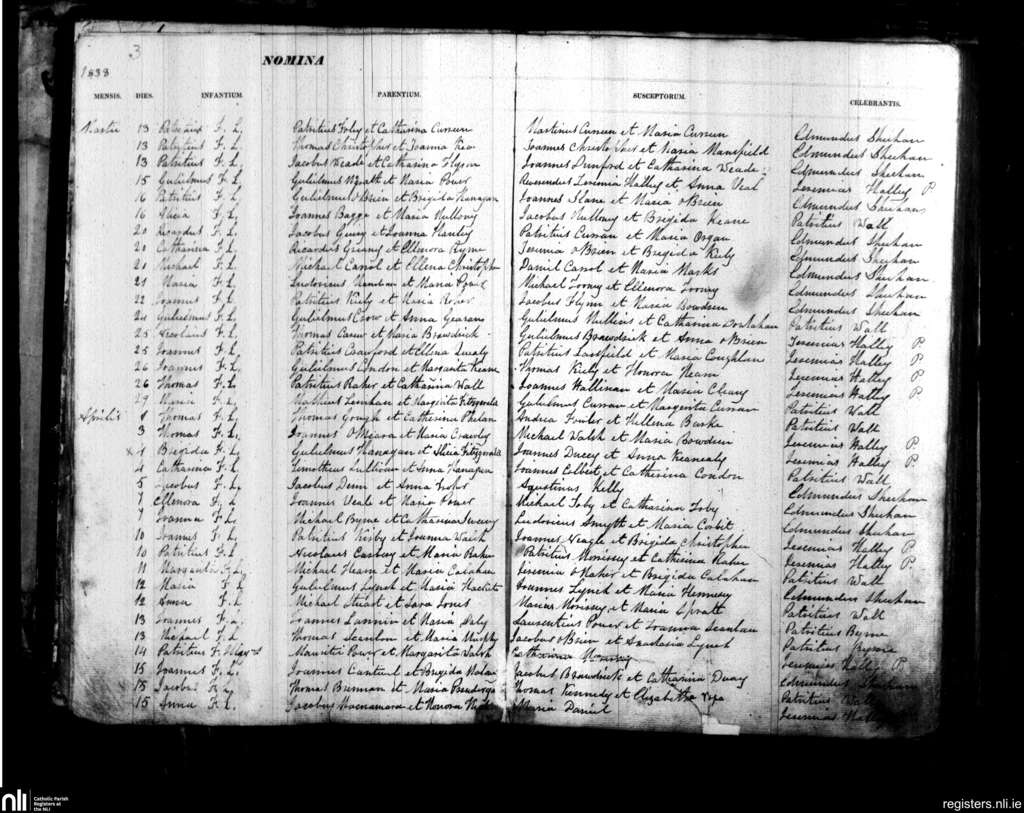 3
NOMINA
1838
MENSIS. DIES. INFANTIUM. PARENTIUM. SUSCEPTORUM. CELEBRANTIS.
13 Patritius F. L. Patritius Foley et Catharina Curreen Martinus Curreen et Maria Curreen Edmundus Sheehan
13 Patritius F. L. Thomas Christopher et Joanna Joannes Christopher et Maria Mansfield Edmundus Sheehan
13 Patritius F. L. Jacobus Meade et Catharina Flynn Joannes Dunford et Catharina Meade Edmundus Sheehan
15 Gulielmus F. L. Gulielmus et Maria Power Halley et Anna Veal Jeremias Halley P
16 Patritius F. L. Gulielmus O'Brien et Brigida Hanagan Joannes Slane et Maria O'Brien Edmundus Sheehan
16 Alicia F. L. Joannes Bagge et Maria Jacobus et Brigida Keane Patritius Wall
20 Ricardus F. L. Jacobus et Joanna Patritius Curran et Maria Organ Edmundus Sheehan
20 Catharina F. L. Ricardus et Ellenora O'Brien et Brigida Kiely Edmundus Sheehan
21 Michael F. L. Michael Carrol et Ellena Christopher Daniel Carrol et Maria Marks Edmundus Sheehan
21 Maria F. L. et Maria Michael Tooney et Ellenora Tooney Edmundus Sheehan
22 Joannes F. L. Patritius Kiely et Maria Jacobus Flynn et Maria Bowdren Edmundus Sheehan
24 Gulielmus F. L. Gulielmus Crow et Anna Gearan Gulielmus et Catharina Patritius Wall
25 F. L. Thomas et Maria Brawdrick Gulielmus Brawdrick et Anna O'Brien Jeremias Halley P
25 Joannes F. L. Patritius Crawford et Ellena Patritius et Maria Coughlan Jeremias Halley P
26 Joannes F. L. Gulielmus Condon et Margarita Keane Thomas Kiely et Honora Jeremias Halley P
26 Thomas F. L. Patritius Maher et Catharina Wall Joannes Hallinan et Maria Cleary Jeremias Halley P
29 Maria F. L. et Margarita Fitzgerald Gulielmus Curran et Margarita Curran Patritius Wall
Aprilis 1 Thomas F. L. Thomas Gough et Catharina Phelan Andrea Fowler et Hellena Burke Patritius Wall
3 Thomas F. L. Joannes O'Meara et Maria Crawley Michael Walsh et Maria Bowdren Jeremias Halley P
x 4 Brigida F. L. Gulielmus Hanagan et Alicia Fitzgerald Joannes Ducey et Anna Jeremias Halley P.
4 Catharina F. L. Timotheus Sullivan et Anna Hanagan Joannes Colbert et Catharina Condon Patritius Wall
5 Jacobus F. L. Jacobus Dunn et Anna Agustinus Kelly Edmundus Sheehan
7 Ellenora F. L. Joannes Veale et Maria Power Michael Foby et Catharina Foby Edmundus Sheehan
7 Joanna F. L. Michael Byrne et Catharina Sweeny Ludovicus Smyth et Maria Corbit Edmundus Sheehan
10 Joannes F. L. Patritius Kirby et Joanna Walsh Joannes Neagle et Brigida Christopher Jeremias Halley P
10 Patritius F. L. Nicolaus et Maria Maher Patritius Morissey et Catharina Maher Jeremias Halley P
11 Margarita F. L. Michael et Maria Calahan Jeremia O Maher et Brigida Calahan Patritius Wall
12 Maria F. L. Gulielmus Lynch et Maria Hackett Joannes Lynch et Maria Hennesy Edmundus Sheehan
12 Anna F. L. Michael Stuart et Sara Jones Marcus Morissey et Maria Spratt Patritius Wall
13 Joannes F. L. Joannes et Maria Daly Laurentius Power et Joanna Scanlan Patritius Byrne
13 Michael F. L. Thomas Scanlon et Maria Murphy Jacobus O'Brien et Anastasia Lynch Patritius Byrne
14 Patritius F. Mauritii Power et Margarita Walsh Catharina Jeremias Halley P
15 Joannes F. L. Joannes et Brigida Nolan Jacobus Brawdrick et Catharina Duay Edmundus Sheehan
15 Jacobus F. L. Thomas et Maria Thomas Kennedy et Elizabetha Patritius Wall
15 Anna F. L. Jacobus Macnamara et Honora Maria Daniel Jeremias Halley
nli
Catholic Parish
Registers at
the NLI
registers.nli.ie